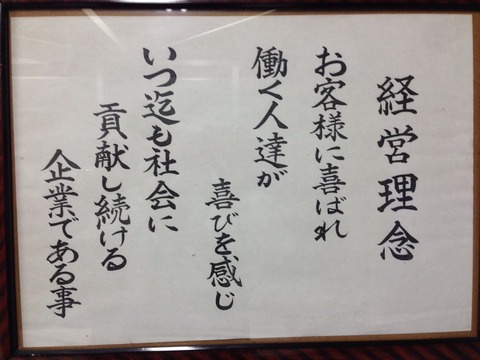 経営理念
お客様に喜ばれ
働く人達が
喜びを感じ
いつ迄も社会に
貢献し続ける
企業である事